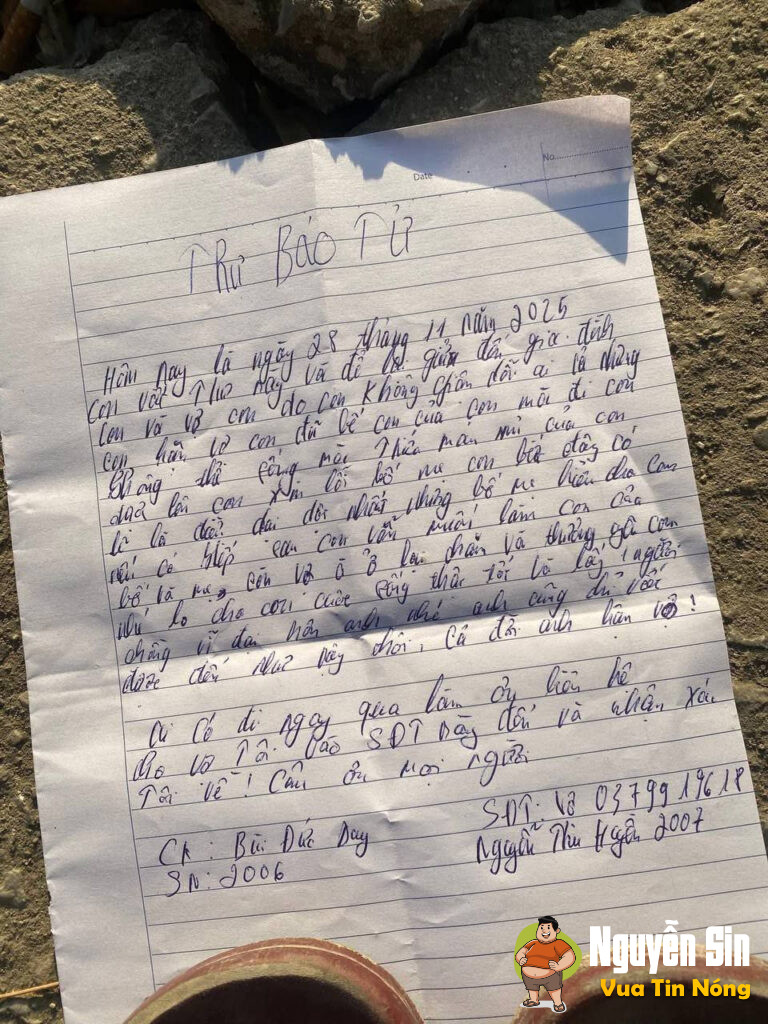 No.
Date
THƯ BÁO TỬ
Hôm nay là ngày 28 tháng 11 năm 2025
con viết Thư này và để lại gia đình
con và vợ con do con không ai cả những
con hận vợ con đã bế con của con mãi đi con
không thể sống mãi Thỏa mãn của con
con xin lỗi bố mẹ con biết đây có
lẽ là dại nhất những bố mẹ hiểu cho con
nếu có kiếp sau con vẫn muốn làm con của
bố và mẹ còn vợ ở và thương yêu con
nhé lo cho con cuộc sống thật tốt và lấy 1 người
chồng vĩ đại hơn anh nhé anh cũng chỉ viết
được đến như này thôi, cả đời anh hận vợ!
Ai có đi ngay qua làm ơn liên hệ
cho vợ Tôi vào SĐT này đến và nhận xác
Tôi về! Cảm ơn mọi người
SĐT: Vợ 0379919618
CK: Bùi Đức Day
Nguyễn Thu Huyền 2007
SN: 2006
Nguyễn Sin
Vua Tin Nóng